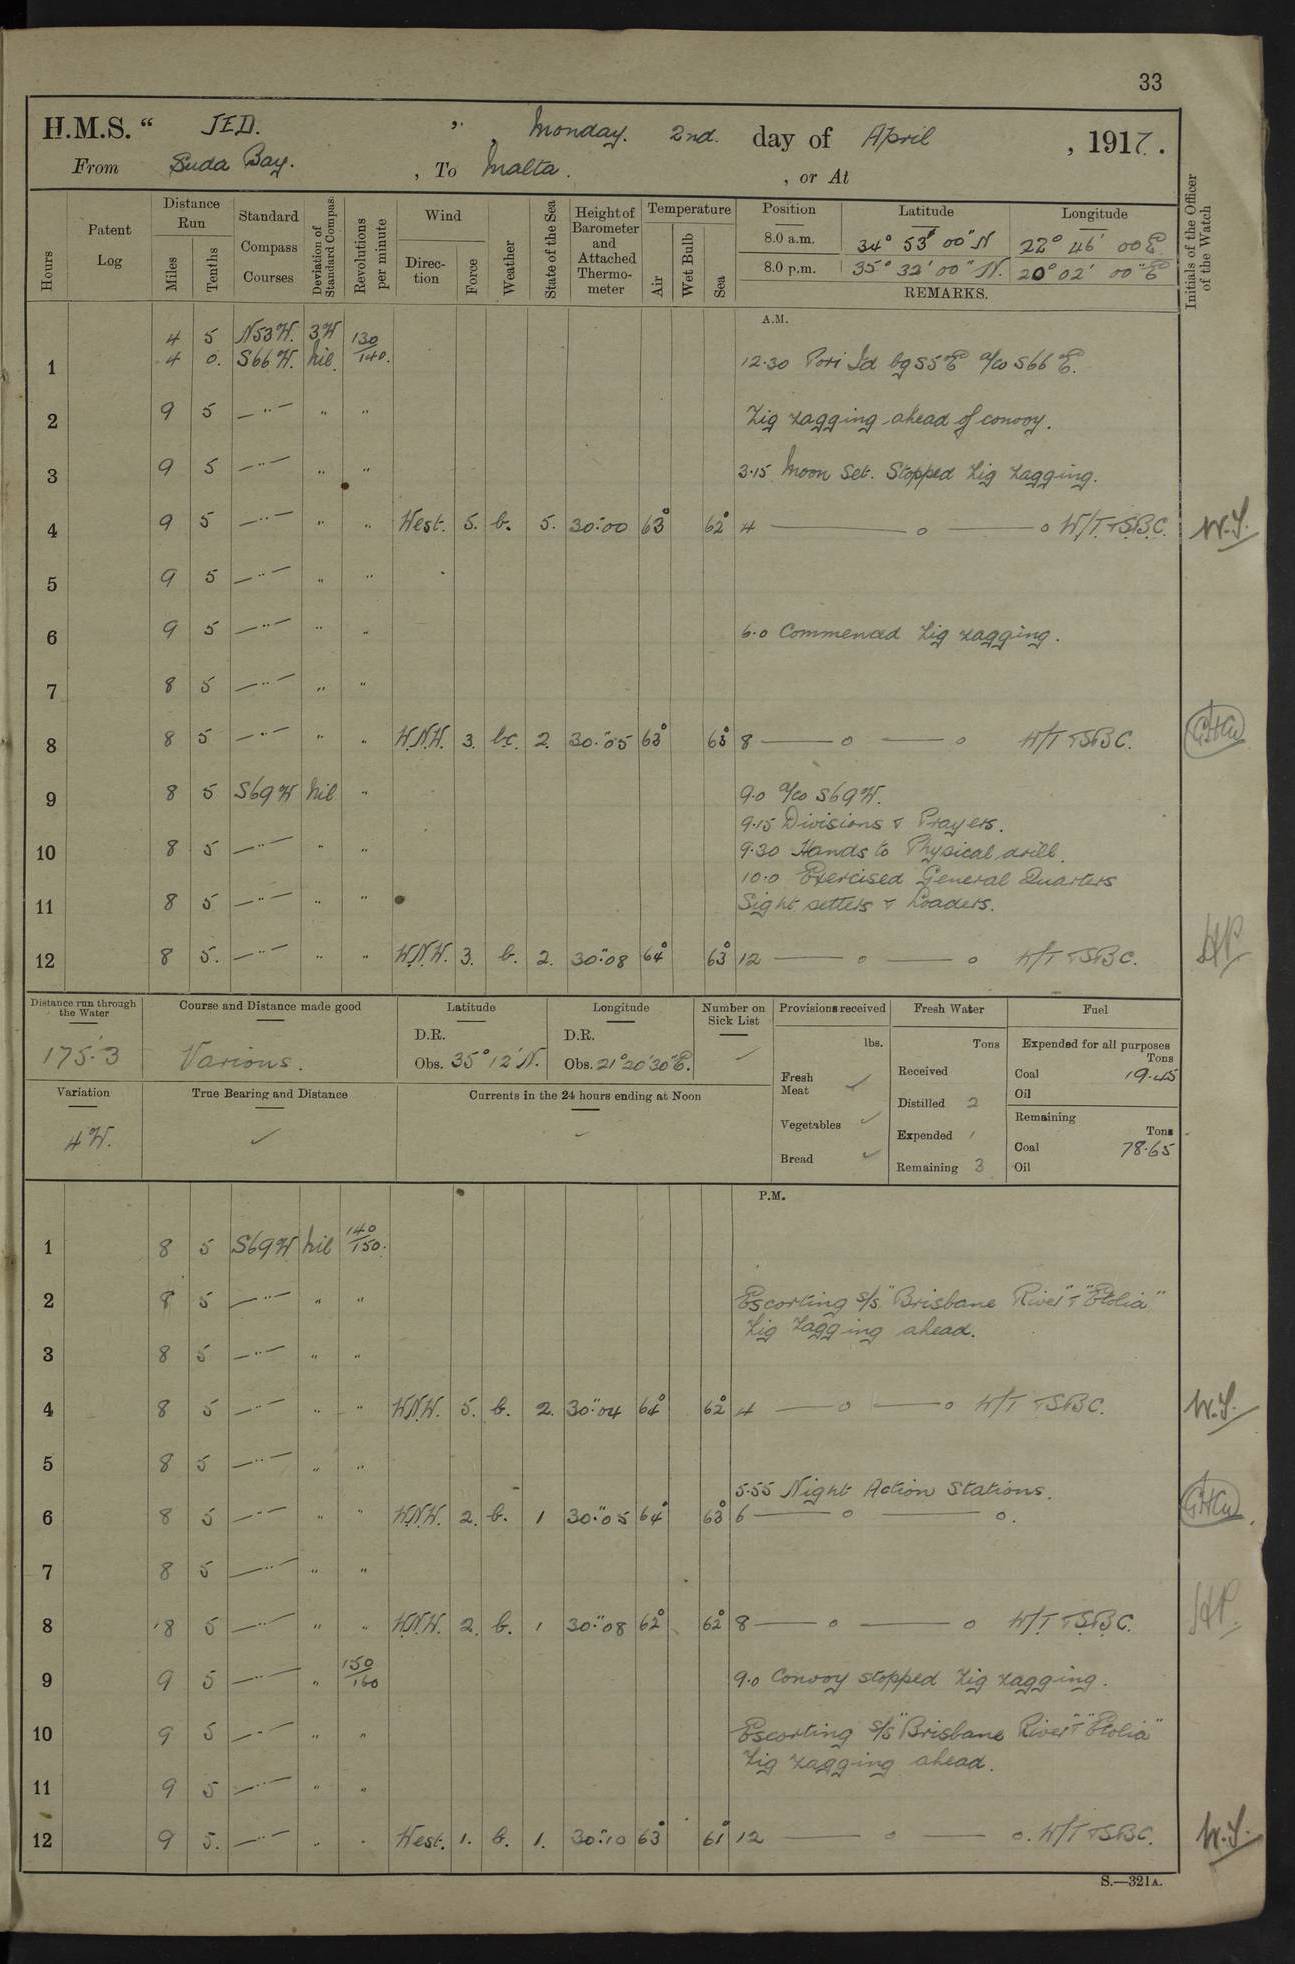 33
H.M.S. “ JED. ” , Monday. 2nd. day of April , 1917.
From Suda Bay. , To Malta. , or At
Hours
Patent Log
Distance Run
Miles
Tenths
Standard Compass Courses
Deviation of Standard Compass
Revolutions per minute
Wind
Direction
Force
Weather
State of the Sea
Height of Barometer and Attached Thermometer
Temperature
Air
Wet Bulb
Sea
Position Latitude Longitude
8.0 a.m. 34° 53' 00" N 22° 46' 00 E
8.0 p.m. 35° 32' 00" N. 20° 02' 00" E
REMARKS.
Initials of the Officer of the Watch
A.M.
4 5 N53W. 3W 130
1 4 0. S66W. nil. 140. 12.30 Pori Id bg S5E a/co S66 E.
2 9 5 —"— " " Zig zagging ahead of convoy.
3 9 5 —"— " " 3.15 Moon Set. Stopped Zig Zagging.
4 9 5 —"— " " West. 5. b. 5. 30.00 63° 62° 4 — o — o W/T & SBC. W.S.
5 9 5 —"— " "
6 9 5 —"— " " 6.0 Commenced Zig zagging.
7 8 5 —"— " "
8 8 5 —"— " " W.N.W. 3. bc. 2. 30.05 63° 63° 8 — o — o W/T & SBC.
9 8 5 S69W nil " 9.0 a/co S69W.
9.15 Divisions & Prayers.
10 8 5 —"— " " 9.30 Hands to Physical drill.
10.0 Exercised General Quarters
11 8 5 —"— " " Sight setters & Loaders.
12 8 5. —"— " " W.N.W. 3. b. 2. 30.08 64° 63° 12 — o — o W/T & SBC. HP
Distance run through the Water
175.3
Course and Distance made good
Various.
Latitude
D.R.
Obs. 35° 12' N.
Longitude
D.R.
Obs. 21° 20' 30" E.
Number on Sick List
✓
Provisions received
lbs.
Fresh Meat ✓
Vegetables ✓
Bread ✓
Fresh Water
Tons
Received
Distilled 2
Expended 1
Remaining 3
Fuel
Expended for all purposes
Tons
Coal 19.45
Oil
Remaining
Tons
Coal 78.65
Oil
Variation
4W.
True Bearing and Distance
✓
Currents in the 24 hours ending at Noon
✓
P.M.
1 8 5 S69W nil 140/150.
2 8 5 —"— " " Escorting s/s "Brisbane River" & "Etolia"
Zig Zagging ahead.
3 8 5 —"— " "
4 8 5 —"— " " W.N.W. 5. b. 2. 30.04 64° 62° 4 — o — o W/T & SBC. W.S.
5 8 5 —"— " "
5.55 Night Action Stations.
6 8 5 —"— " " W.N.W. 2. b. 1 30.05 64° 63° 6 — o — o.
7 8 5 —"— " "
8 8 5 —"— " " W.N.W. 2. b. 1 30.08 62° 62° 8 — o — o W/T & SBC. HP.
9 9 5 —"— " 150/160 9.0 Convoy stopped Zig zagging.
10 9 5 —"— " " Escorting s/s "Brisbane River" & "Etolia"
Zig zagging ahead.
11 9 5 —"— " "
12 9 5. —"— " " West. 1. b. 1. 30.10 63° 61° 12 — o — o. W/T & SBC. W.S.
S.—321A.